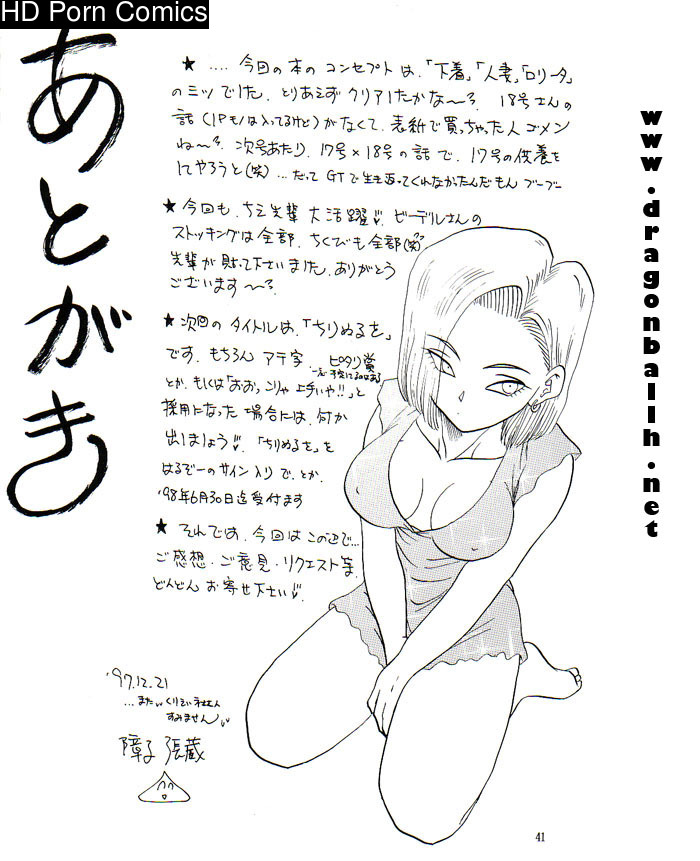 HD Porn Comics
あとがき
★ .... 今回の本のコンセプトは、「下着」「人妻」「ロリータ」
のミツでした。とりあえずクリアしたかな〜?。18号さんの
話(1Pモノは入ってるけど)がなくて、表紙で買っちゃった人ゴメン
ね〜?。次号あたり、17号×18号の話で、17号の供養を
してやろうと(笑)...だってGTで生き返ってくれなかったんだもんブーブー
★ 今回も、ちえ先輩 大活躍♡。ビーデルさんの
ストッキングは全部、ちくびも全部(笑)
先輩が貼って下さいました。ありがとう
ございます〜?。
★ 次回のタイトルは、「ちりぬるを」
です。もちろんアテ字。ピタリ賞
とか、もしくは「おおっこりゃ上手いや!!」と
採用になった場合には、何か
出しましょう♡。「ちりぬるを」を
はるぞーのサイン入りで、とか。
'98年6月30日迄受付ます
★ それでは、今回はこの辺で...
ご感想・ご意見・リクエスト等、
どんどんお寄せ下さい♡。
'97.12.21
...また
すみません
障子 張蔵
41
www.dragonballh.net